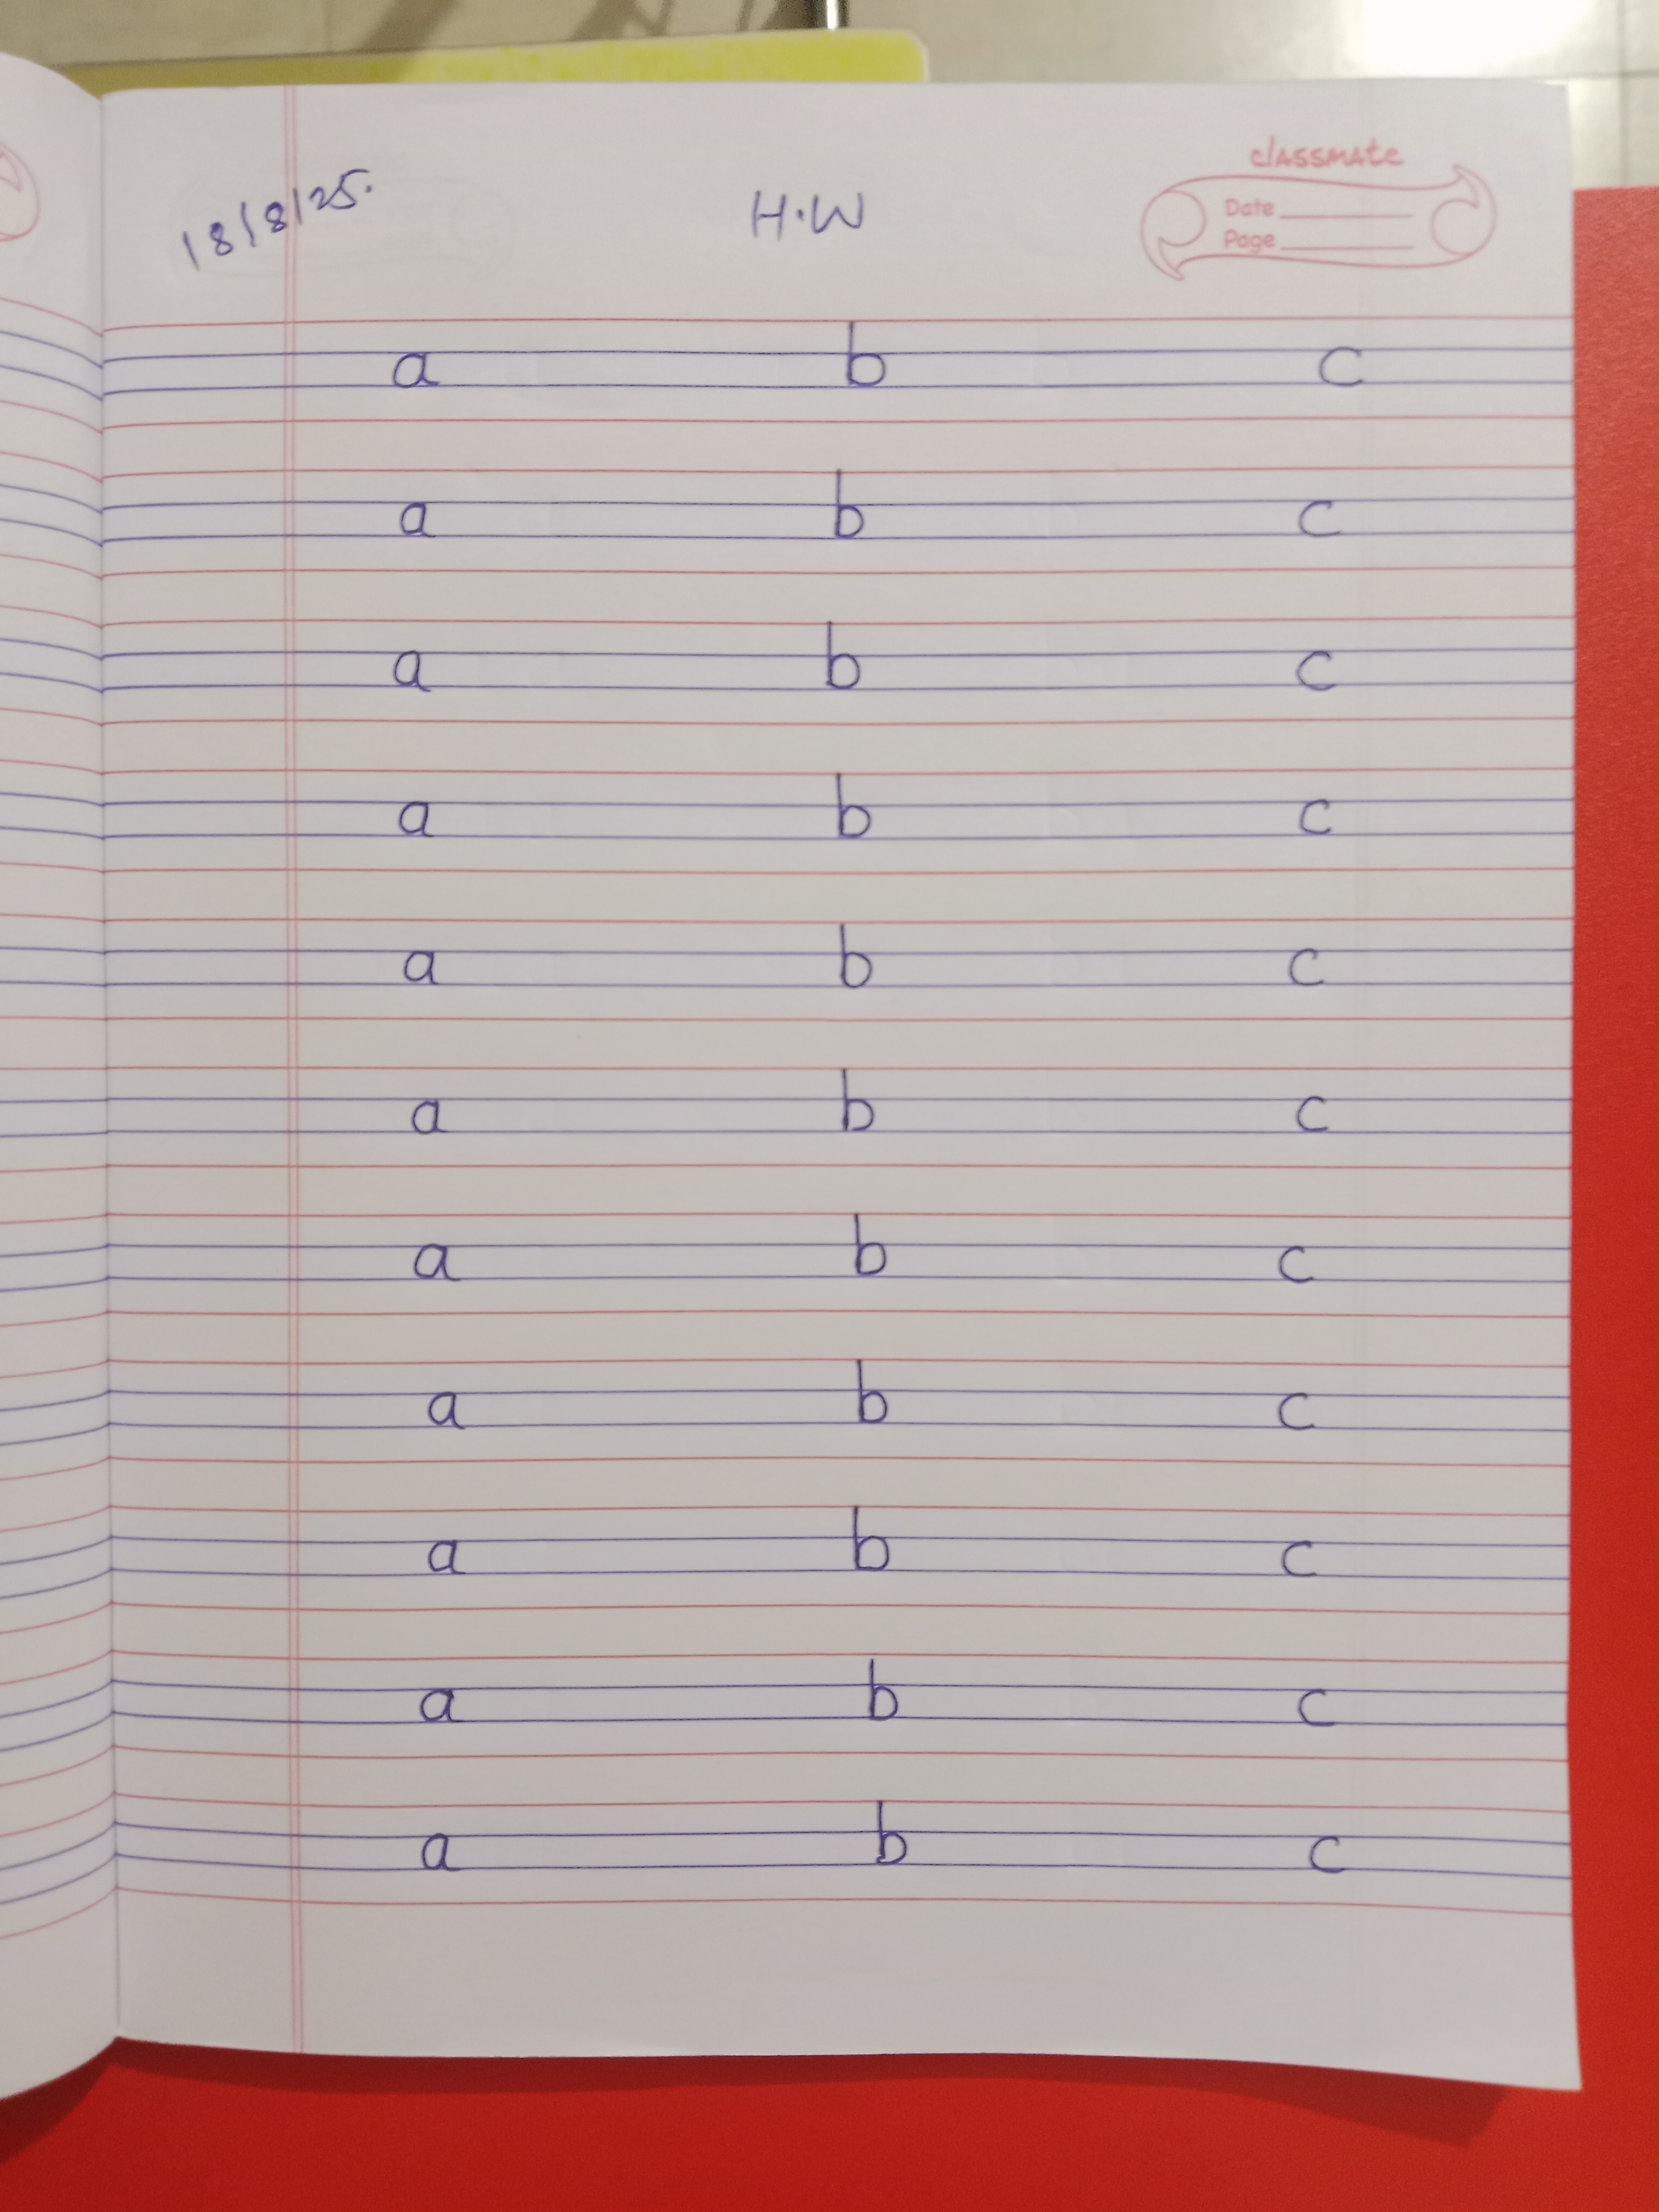 18/8/25. H.W classmate
Date
Page
a b c
a b c
a b c
a b c
a b c
a b c
a b c
a b c
a b c
a b c
a b c